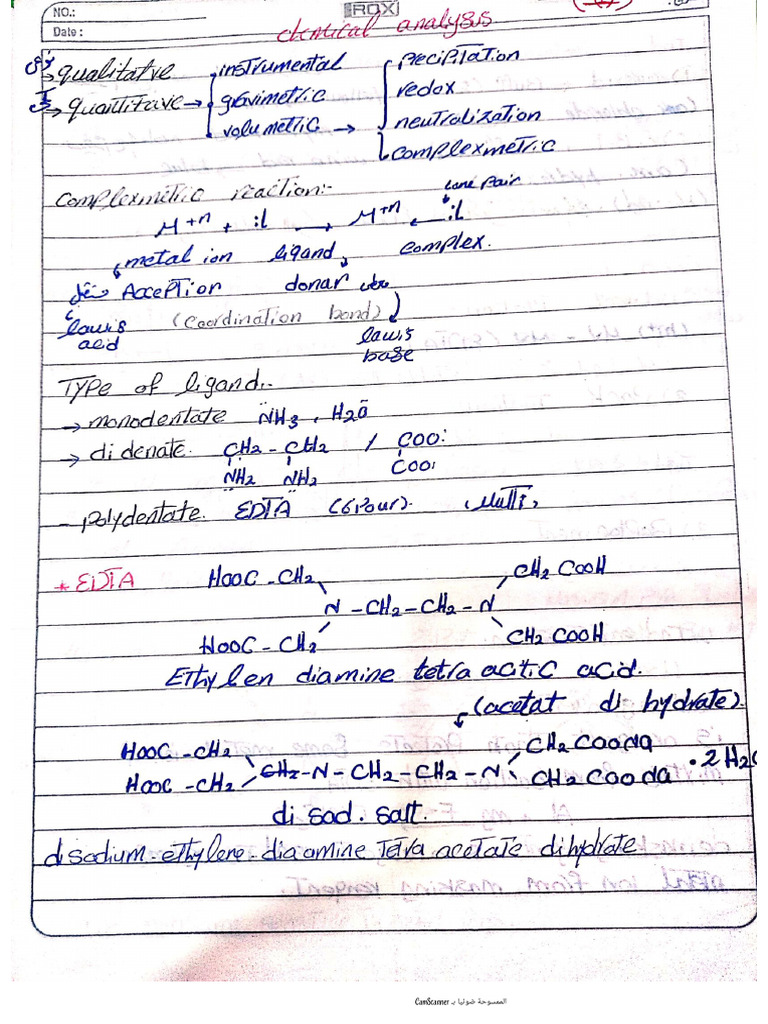 NO.:
ROX
Date :
chmical analysis
نوعي → qualitatve
كمي → quantitaive → instrumental
gravimetric
volumetric →
precipitation
redox
neutralization
complexmetric
complexmetric reaction:-
lone pair
M+n + :L → M+n ← :L
metal ion ligand complex.
Acception donar
lawis acid (coordination bond) lawis base
Type of ligand:-
→ monodentate NH3 , H2O
→ didenate. CH2 - CH2 / COO:
NH2 NH2 COO:
- polydentate. EDTA (6 Pour). (Multi)
* EDTA HOOC - CH2 CH2 COOH
N - CH2 - CH2 - N
HOOC - CH2 CH2 COOH
Ethylen diamine tetra acitic acid.
(acetat di hydrate).
HOOC - CH2 CH2 COONa
CH2 - N - CH2 - CH2 - N · 2H2O
HOOC - CH2 CH2 COONa
di sod. salt.
disodium-ethylene-diaamine tetra acetate dihydrate
الممسوحة ضوئيا بـ CamScanner